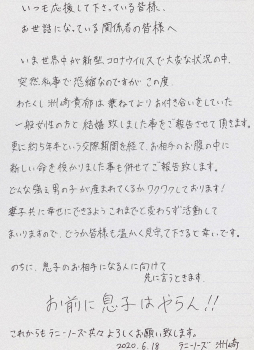 いつも応援して下さっている皆様、
お世話になっている関係者の皆様へ
いま世界中が新型コロナウイルスで大変な状況の中、
突然私事で恐縮なのですが この度、
わたくし洲崎貴郁は兼ねてよりお付き合いをしていた
一般女性の方と結婚致しました事をご報告させて頂きます。
更に約5年半という交際期間を経て、お相手のお腹の中に
新しい命を授かりました事も併せてご報告致します。
どんな強え男の子が産まれてくるかワクワクしております!
妻子共に幸せにできるよう これまでと変わらず活動して
まいりますので、どうか皆様も温かく見守って下さると幸いです。
のちに、息子のお相手になる人に向けて
先に言うときます。
お前に息子はやらん!!
これからもテニーノーズ共々よろしくお願い致します。
2020.6.18 テニーノーズ 洲崎